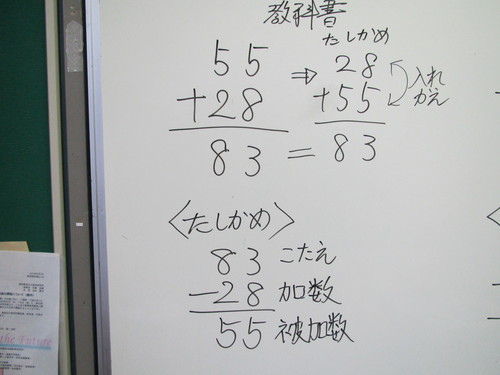 教科書
たしかめ
55 ⇒ 28
+28 +55 入れかえ
83 = 83
〈たしかめ〉
83 こたえ
-28 加数
55 被加数
the Future